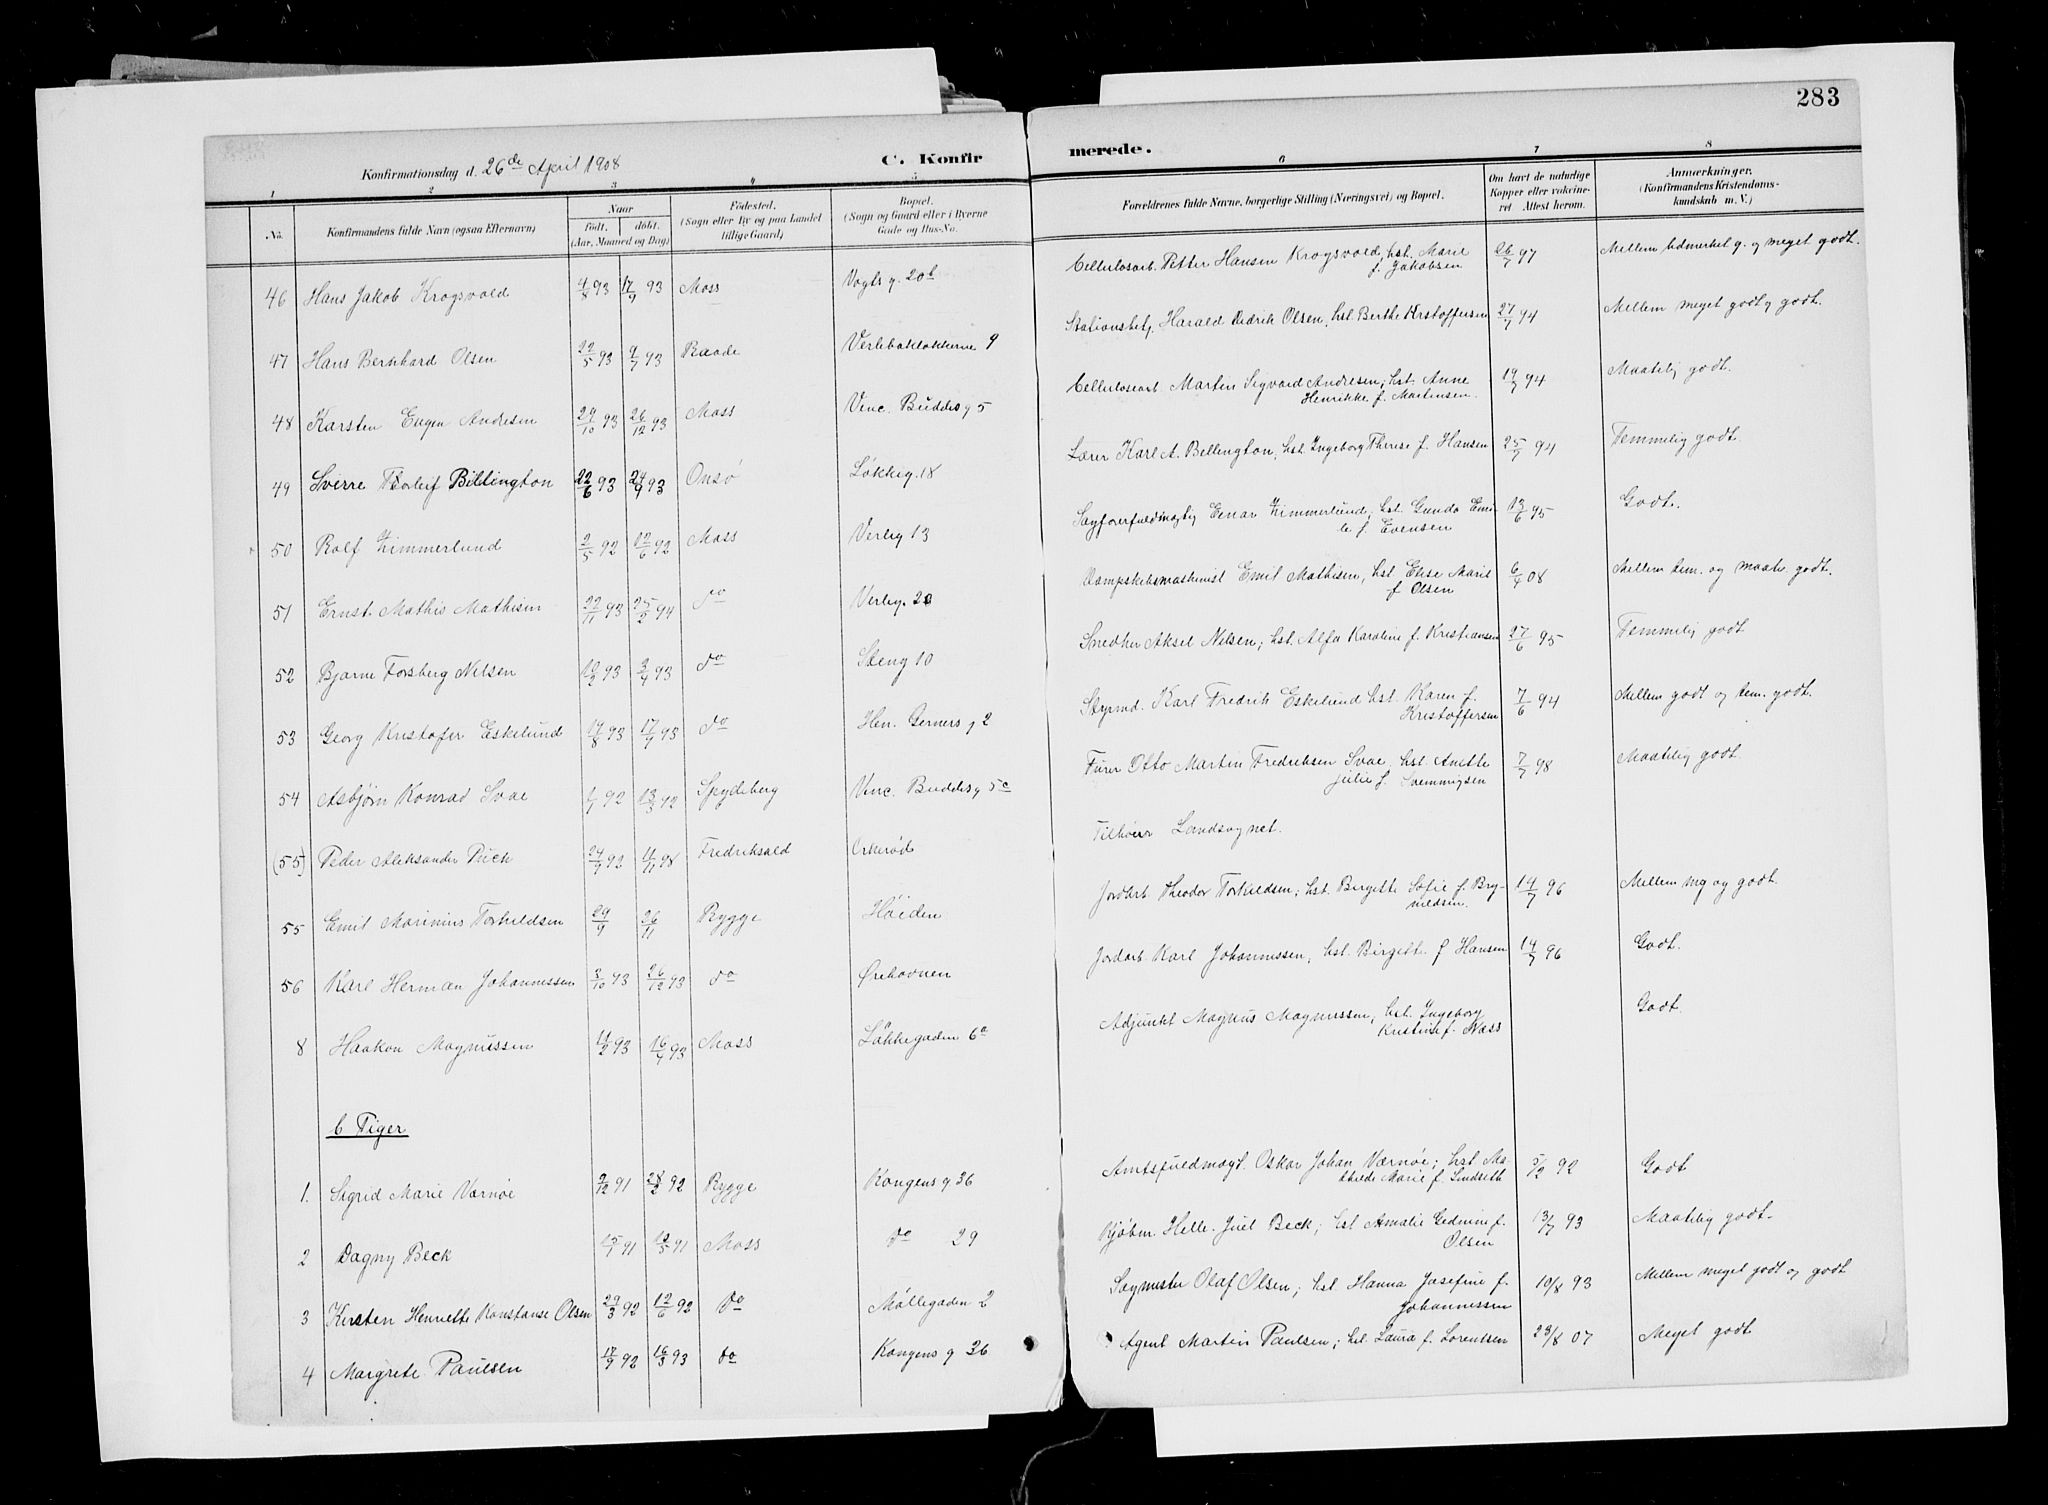 283
Konfirmationsdag d. 26de April 1908
C. Konfir
merede.
1 2 3 4 5 6 7 8
No. Konfirmandens fulde Navn (ogsaa Efternavn) Naar født. døbt. (Aar, Maaned og Dag) Fødested. (Sogn eller By og paa Landet tillige Gaard) Bopæl. (Sogn og Gaard eller i Byerne Gade og Hus-No. Forældrenes fulde Navne, borgerlige Stilling (Næringsvei) og Bopæl. Om havt de naturlige Kopper eller vakcineret Attest herom. Anmærkninger. (Konfirmandens Kristendomskundskab m. V.)
46 Hans Jakob Krogsvold 4/8 93 17/9 93 Moss Vogts g. 20b Cellulosarb. Petter Hansen Krogsvold, hst. Marie f. Jakobsen 26/7 97 Mellem Udmerket g. og meget godt.
47 Hans Bernhard Olsen 22/5 93 9/7 93 Raade Verlebakløkkerne 9 Stationsbetj. Harald Didrik Olsen, hst. Berthe Kristoffersen 27/7 94 Mellem meget godt og godt.
48 Karsten Eugen Andresen 29/10 93 26/12 93 Moss Venc. Buddes g 5 Cellulosearb Martin Sigvard Andresen, hst. Anne Henrikke f. Martinsen. 19/7 94 Maatelig godt.
49 Sverre Thorleif Billington 22/6 93 24/9 93 Onsø Løkkeg. 18 Lærer Karl A. Bellington, hst. Ingeborg Therese f. Hansen 25/7 94 Temmelig godt.
50 Rolf Zimmerlund 2/5 92 12/6 92 Moss Verleg 13 Sagførerfuldmægtig Einar Zimmerlund; hst. Gunda Emilie f. Evensen 13/6 95 Godt.
51 Ernst Mathis Mathisen 22/11 93 25/2 94 do Verleg. 20 Dampskibsmaskinist Emil Mathisen, hst. Elise Marie f Olsen 6/4 08 Mellem tem. og maatel. godt.
52 Bjarne Forsberg Nelsen 12/2 93 3/4 93 do Steng 10 Snedker Aksel Nelsen; hst. Alfa Karoline f. Kristiansen 27/6 95 Temmelig godt
53 Georg Kristofer Eskelund 17/8 93 17/9 93 do Hen. Gerners g 2 Styrmd. Karl Fredrik Eskelund hst. Karen f. Kristoffersen 7/6 94 Mellem godt og tem. godt.
54 Asbjørn Konrad Svae 1/1 92 13/3 92 Spydeberg Venc. Buddes g 5c Fører Otto Martin Fredriksen Svae, hst. Anette Julie f. 7/7 98 Maatelig godt.
(55) Peder Aleksander Puck 24/9 92 4/11 98 Fredriksald Orkerød Tilhører Landsognet.
55 Emil Marinius Torkildsen 29/9 26/11 Rygge Høiden Jordarb. Theodor Torkildsen; hst. Birgitte Sofie f. Brynildsen. 14/7 96 Mellem mg og godt.
56 Karl Herman Johannessen 3/10 93 26/12 93 do Ørehavnen Jordarb. Karl Johannessen, hst. Birgitte f Hansen 14/7 96 Godt.
8 Haakon Magnussen 11/2 93 16/4 93 Moss Løkkegaden 6a Adjunkt Magnus Magnussen, hst. Ingeborg Kristine f. Nass Godt.
b Piger
1. Sigrid Marie Værnøe 2/12 91 28/2 92 Rygge Kongens g 36 Amtsfuldmægt. Oskar Johan Værnøe; hst. Mathilde Marie f. Lindseth 5/2 92 Godt
2 Dagny Beck 15/1 91 18/5 91 Moss do 29 Kjøbm. Helle. Juel Beck; hst Amalie Gedmine f. Olsen 13/7 93 Maatelig godt.
3 Kirsten Henriette Konstanse Olsen 29/3 92 12/6 92 do Møllegaden 2 Sagmester Olaf Olsen; hst Hanna Josefine f. Johannessen 10/8 93 Mellem meget godt og godt
4 Margrete Paulsen 17/9 92 16/3 93 do Kongens g 36 Agent Martin Paulsen; hst. Laura f. Lorentsen 23/8 07 Meget godt